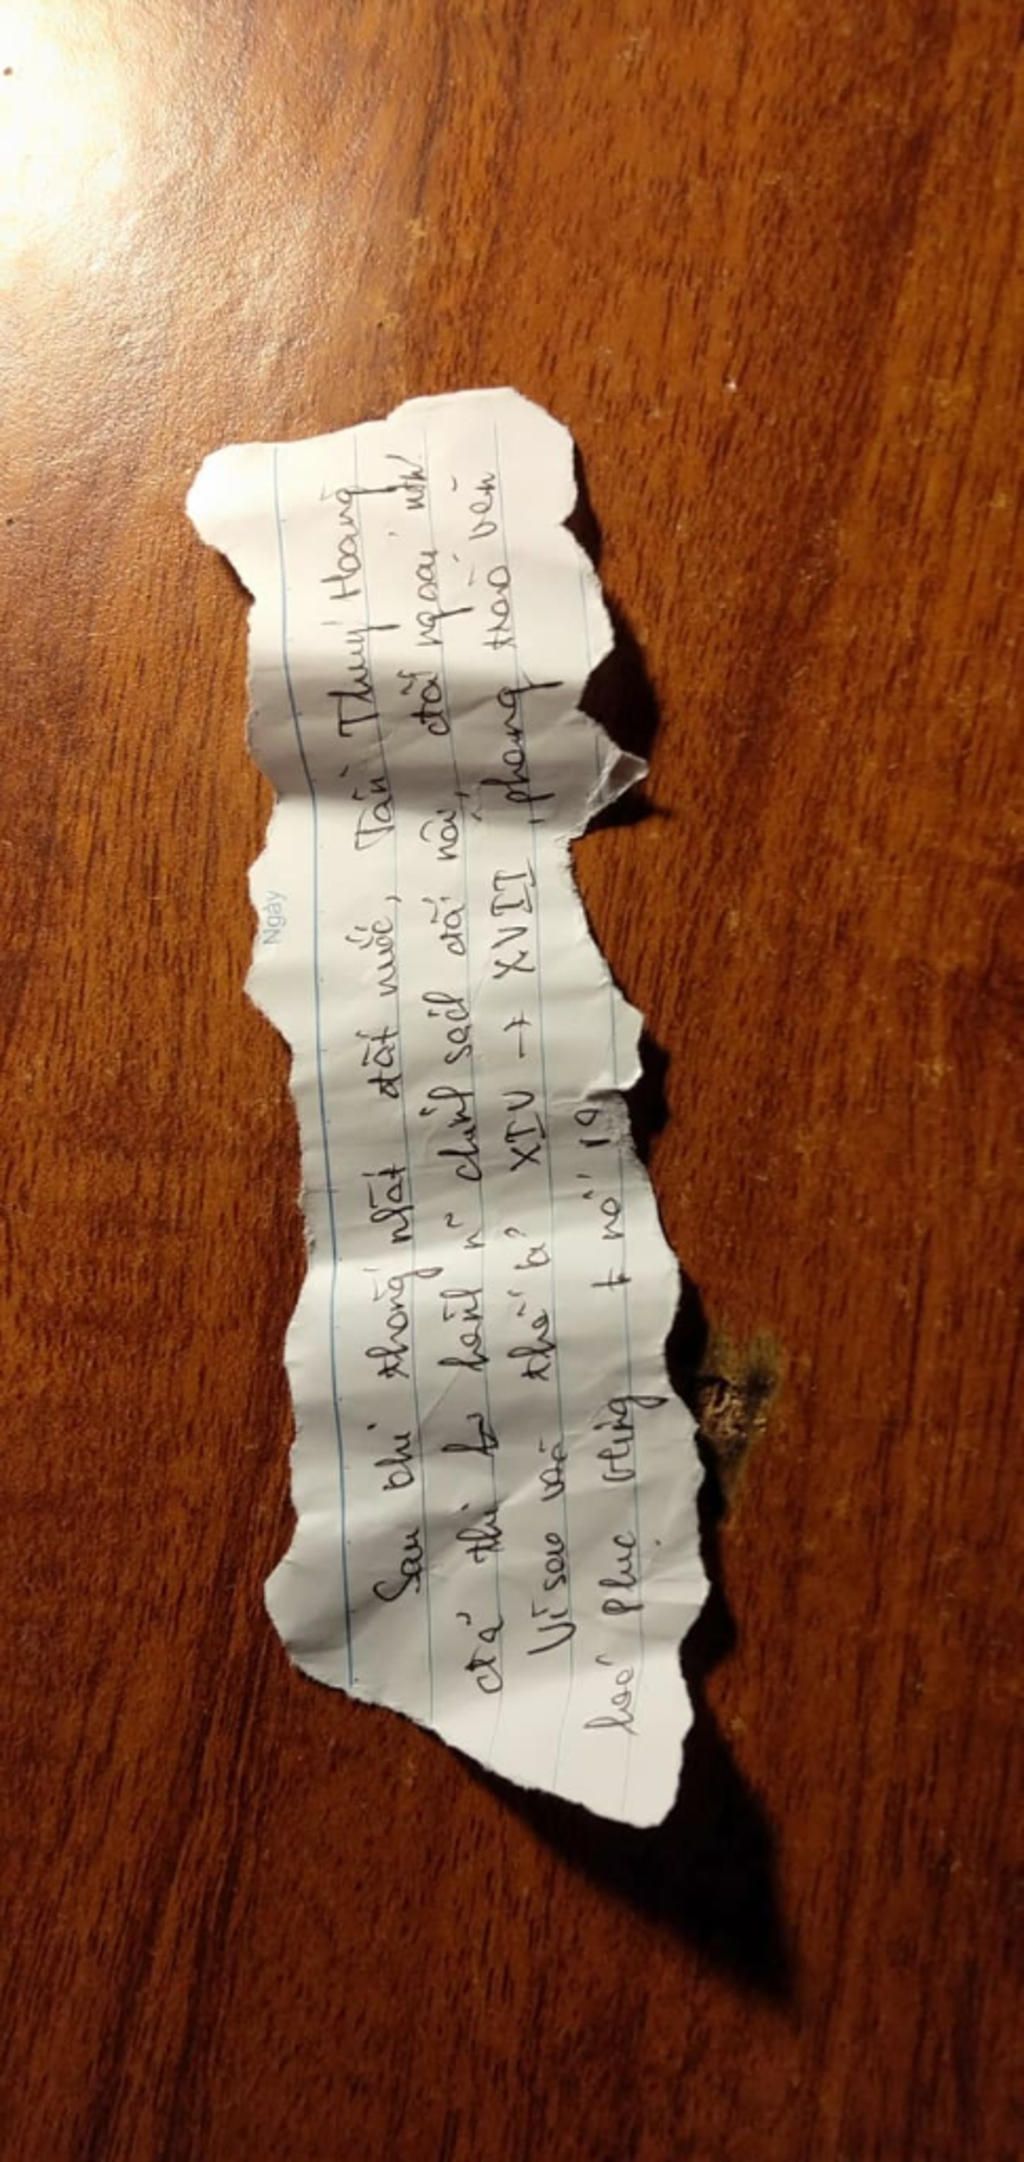 Ngày
Sau khi thống nhất đất nước, Tần Thuỷ Hoàng
đã thi hành n~ chính sách đối nội, đối ngoại ntn
Vì sao thế kỉ XIV → XVII, phong trào văn
hoá Phục Hưng nổi